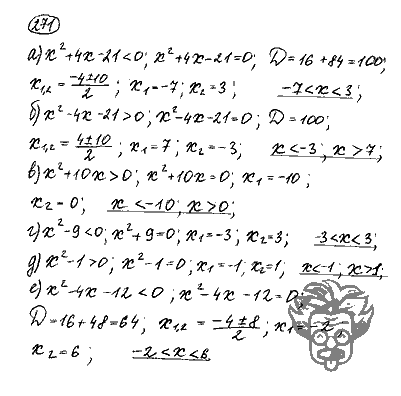 271
а) x²+4x-21<0; x²+4x-21=0; D=16+84=100;
x₁,₂ = (-4±10)/2; x₁=-7; x₂=3; -7<x<3;
б) x²-4x-21>0; x²-4x-21=0; D=100;
x₁,₂ = (4±10)/2; x₁=7; x₂=-3; x<-3, x>7;
в) x²+10x>0; x²+10x=0; x₁=-10;
x₂=0; x<-10, x>0;
г) x²-9<0; x²+9=0; x₁=-3; x₂=3; -3<x<3;
д) x²-1>0; x²-1=0; x₁=-1; x₂=1; x<-1, x>1;
е) x²-4x-12<0; x²-4x-12=0;
D=16+48=64; x₁,₂ = (-4±8)/2; x₁=-2;
x₂=6; -2<x<6